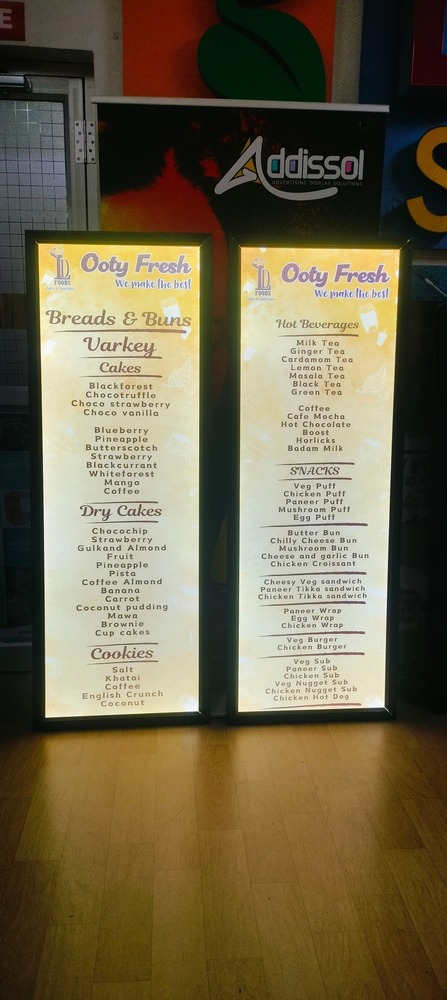 E
Addissol
ADVERTISING DISPLAY SOLUTIONS
S
LD
FOODS
Ooty Fresh
We make the best
Breads & Buns
Varkey
Cakes
Blackforest
Chocotruffle
Choco strawberry
Choco vanilla
Blueberry
Pineapple
Butterscotch
Strawberry
Blackcurrant
Whiteforest
Mango
Coffee
Dry Cakes
Chocochip
Strawberry
Gulkand Almond
Fruit
Pineapple
Pista
Coffee Almond
Banana
Carrot
Coconut pudding
Mawa
Brownie
Cup cakes
Cookies
Salt
Khatai
Coffee
English Crunch
Coconut
LD
FOODS
Ooty Fresh
We make the best
Hot Beverages
Milk Tea
Ginger Tea
Cardamom Tea
Lemon Tea
Masala Tea
Black Tea
Green Tea
Coffee
Cafe Mocha
Hot Chocolate
Boost
Horlicks
Badam Milk
SNACKS
Veg Puff
Chicken Puff
Paneer Puff
Mushroom Puff
Egg Puff
Butter Bun
Chilly Cheese Bun
Mushroom Bun
Cheese and garlic Bun
Chicken Croissant
Cheesy Veg sandwich
Paneer Tikka sandwich
Chicken Tikka sandwich
Paneer Wrap
Egg Wrap
Chicken Wrap
Veg Burger
Chicken Burger
Veg Sub
Paneer Sub
Chicken Sub
Veg Nugget Sub
Chicken Nugget Sub
Chicken Hot Dog